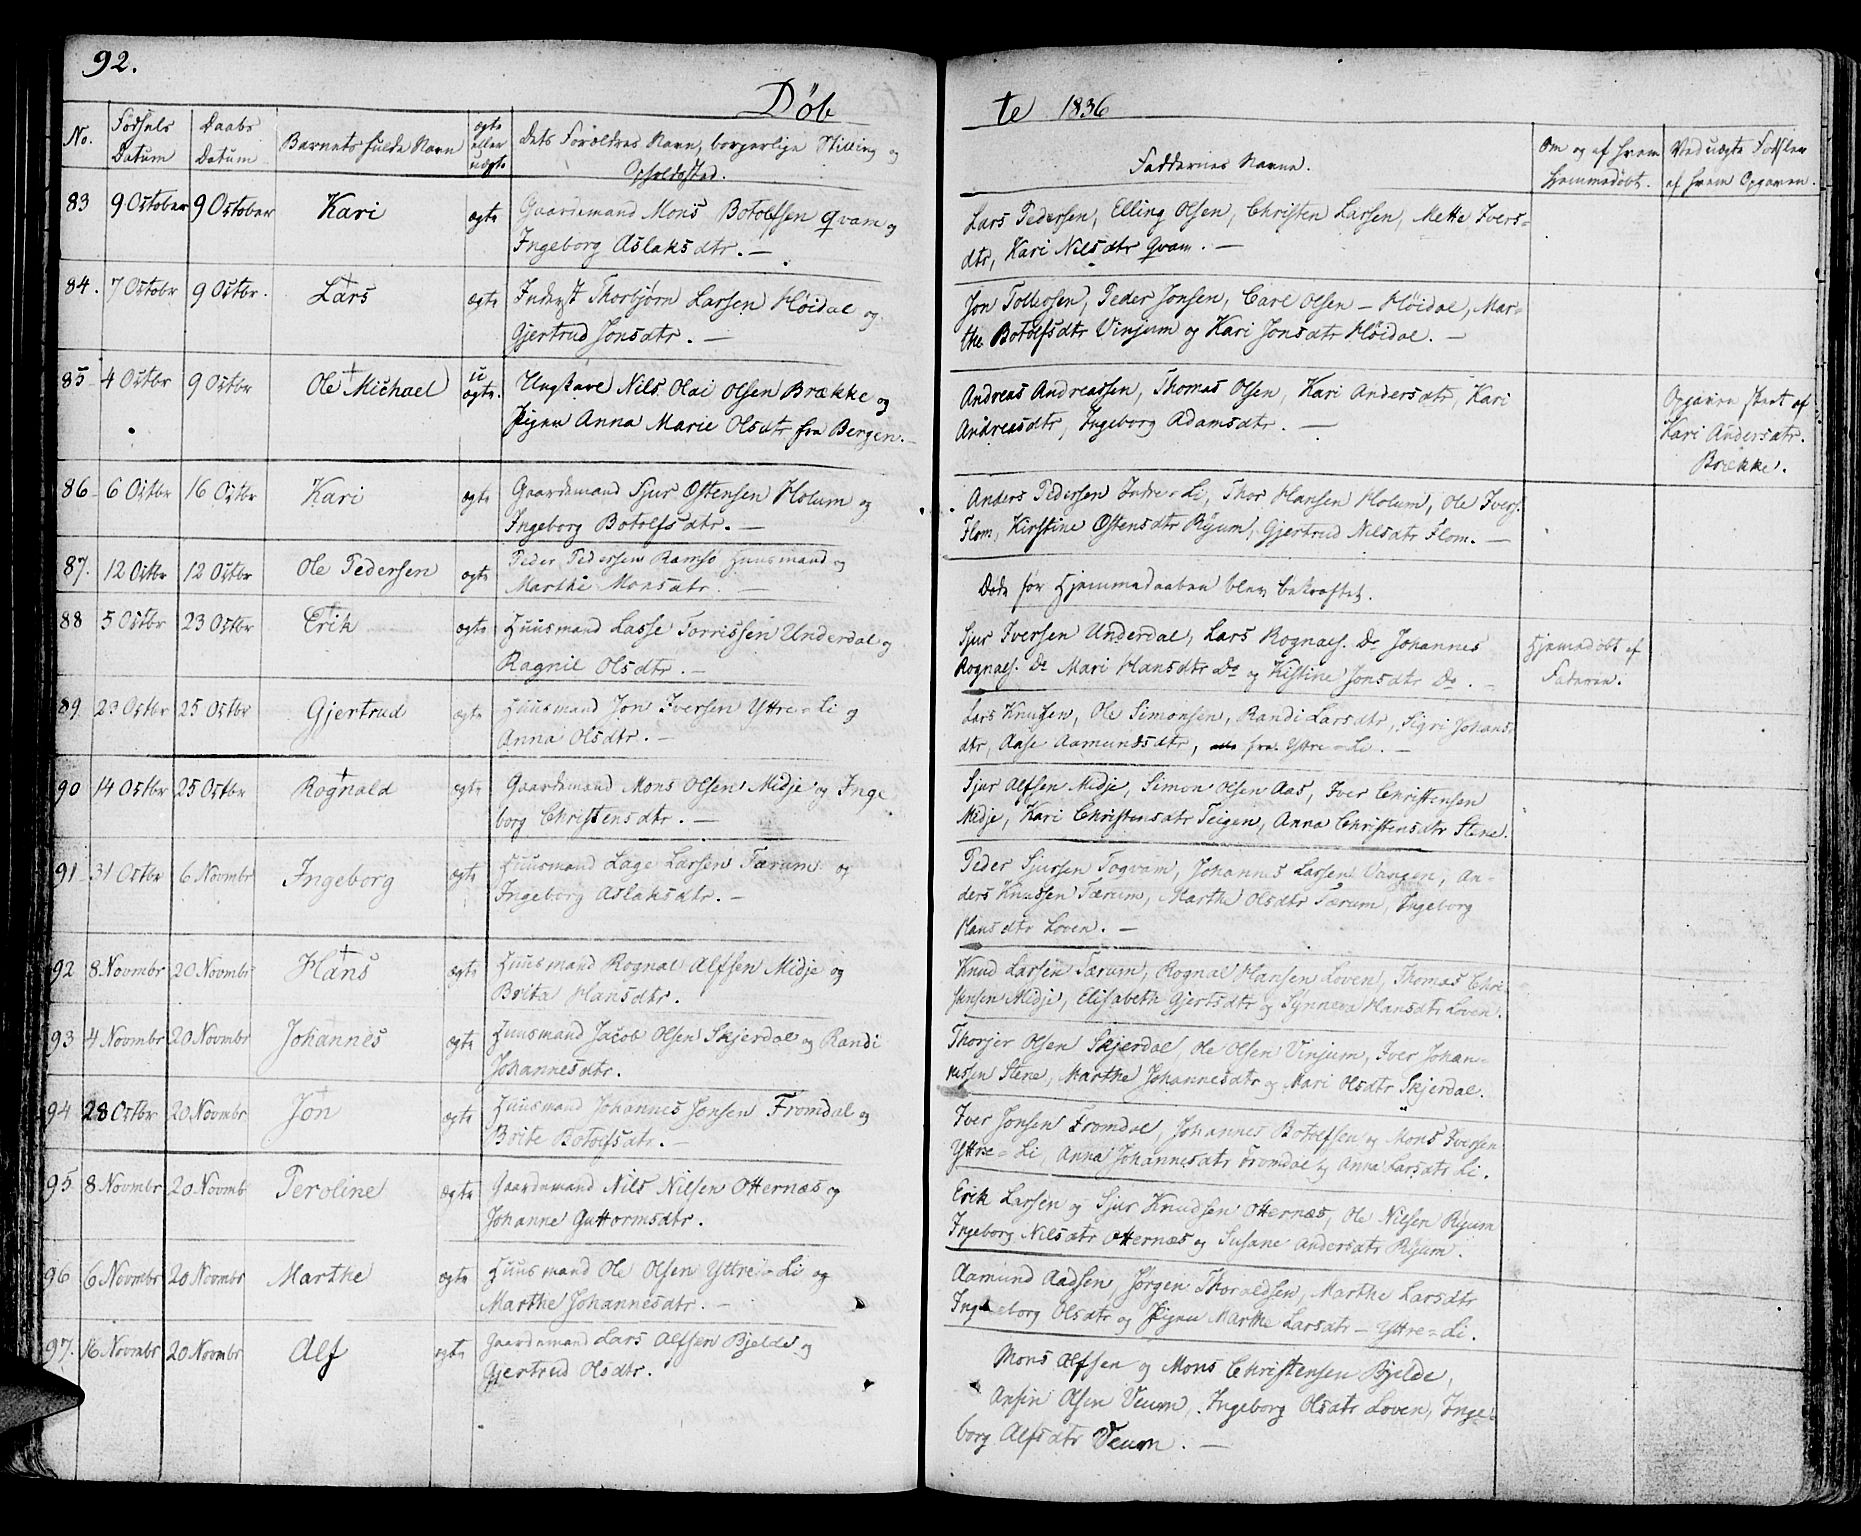 92.
Døb
te 1836
No.
Fødsels Datum
Daabs Datum
Barnets fulde Navn
ægte eller uægte
Dets Forældres Navn, borgerlige Stilling og
Opholdssted.
Faddernes Navne.
Om og af hvem
hjemmedøbt.
Ved uægte Fødsler
af hvem Opgaven.
83 9 October 9 October Kari ægte Gaardemand Mons Botolfsen Qvam og
Ingeborg Aslaksdtr. —
Lars Pedersen, Elling Olsen, Christen Larsen, Mette Ivers-
dtr, Kari Nilsdtr Qvam. —
84. 7 Octobr 9 Octbr. Lars ægte Inderst Thorbjørn Larsen Høidal og
Gjertrud Jonsdtr. —
Jon Tollevsen, Peder Jonsen, Carl Olsen – Høidal, Mar-
the Botolfsdtr Vinjum og Kari Jonsdtr Høidal. —
85 4 Octbr 9 Octbr Ole Michael uægte. Ungkarl Nils Olai Olsen Brække og
Pigen Anna Marie Olsdtr fra Bergen. —
Andreas Andreassen, Thomas Olsen, Kari Andersdtr, Kari
Andreasdtr, Ingeborg Adamsdtr. —
Opgaven skeet af
Kari Andersdtr.
Brække.
86 6 Octbr 16 Octbr Kari ægte Gaardemand Sjur Ostensen Holum og
Ingeborg Botolfsdtr. —
Anders Pedersen Indre-Li, Thor Hansen Holum, Ole Ivers.
Flom, Kirstine Ostensdtr Ryum, Gjertrud Nilsdtr Flom. —
87. 12 Octbr 12 Octbr Ole Pedersen ægte Peder Pedersen Ramsø Huusmand og
Marthe Monsdtr. —
Døde før Hjemmedaaben blev bekræftet.
88 5 Octbr 23 Octbr Erik ægte Huusmand Lasse Torrissen Underdal og
Ragnil Olsdtr. —
Sjur Iversen Underdal, Lars Rognals. Do Johannes
Rognals. Do Mari Hansdtr Do og Kistine Jonsdtr Do. —
Hjemedøbt af
Faderen.
89 23 Octbr 25 Octbr Gjertrud ægte Huusmand Jon Iversen Yttre-Li og
Anna Olsdtr. —
Lars Knutsen, Ole Simonsen, Randi Larsdtr, Sigri Johans-
dtr, Aase Aamundsdtr, alle fra Yttre-Li. —
90 14 Octbr 25 Octbr Rognald ægte Gaardemand Mons Olsen Midje og Inge
borg Christensdtr. —
Sjur Alfsen Midje, Simon Olsen Aas, Iver Christensen
Midje, Kari Christensdtr Teigen, Anna Christensdtr Stene.
91 31 Octbr 6 Novmbr Ingeborg ægte Huusmand Lage Larsen Tærum og
Ingeborg Aslaksdtr. —
Peder Sjursen Togvam, Johannes Larsen Vangen, An-
ders Knudsen Tærum, Marthe Olsdtr Tærum, Ingeborg
Hansdtr Loven. —
92 8 Novmbr 20 Novmbr Hans ægte Huusmand Rognal Alfsen Midje og
Brita Hansdtr.
Knud Larsen Tærum, Rognal Hansen Loven, Thomas Chri
stensen Midje, Elisabeth Gjertsdtr og Synneva Hansdtr Loven.
93 4 Novmbr 20 Novmbr Johannes ægte Huusmand Jacob Olsen Skjerdal og Randi
Johannesdtr.
Thorjer Olsen Skjerdal, Ole Olsen Vinjum, Iver Johan-
nesen Stene, Marthe Johannesdtr og Mari Olsdtr Skjerdal.
94 28 Octbr 20 Novmbr Jon ægte Huusmand Johannes Jonsen Fromdal og
Brite Botolfsdtr. —
Iver Jonsen Fromdal, Johannes Botolfsen og Mons Iversen
Yttre-Li, Anna Johannesdtr Fromdal og Anna Larsdtr Li.
95 8 Novmbr 20 Novmb Peroline ægte Gaardemand Nils Nilsen Otternæs og
Johanne Guttormsdtr.
Erik Larsen og Sjur Knudsen Otternæs, Ole Nilsen Ryum
Ingeborg Nilsdtr Otternæs og Susane Andersdtr Ryum.
96 6 Novmbr 20 Novmbr Marthe ægte Huusmand Ole Olsen Yttre-Li og
Marthe Johannesdtr. —
Aamund Aadsen, Jørgen Thoraldsen, Marthe Larsdtr
Ingeborg Olsdtr og Pigen Marthe Larsdtr – Yttre-Li.
97. 16 Novmbr 20 Novmbr Alf ægte Gaardemand Lars Alfsen Bjelde og
Gjertrud Olsdtr.
Mons Alfsen og Mons Christensen Bjelde,
Ansin Olsen Veum, Ingeborg Olsdtr Loven, Inge-
borg Alfsdtr Veum. —